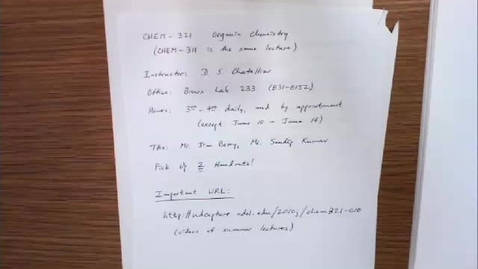 CHEM-321 Organic Chemistry
(CHEM-311 is the same lecture)
Instructor: D S Chatellier
Office: Brown Lab 233 (831-0152)
Hours: daily, and by appointment
(except June 10 - June 16)
TAs: Mr. Jim Berry, Mr. Sandip Kumar
Pick up 2 Handouts!
Important URL:
(videos of summer lectures)